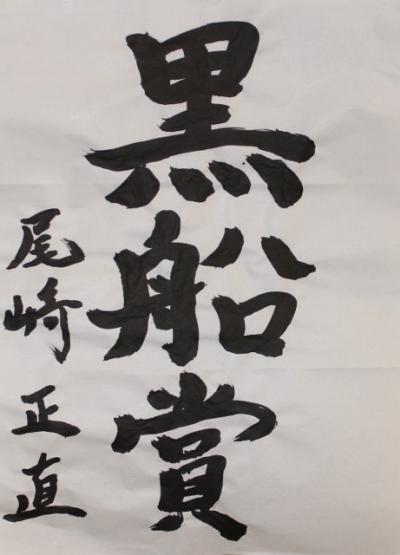 黒船賞
尾崎正直